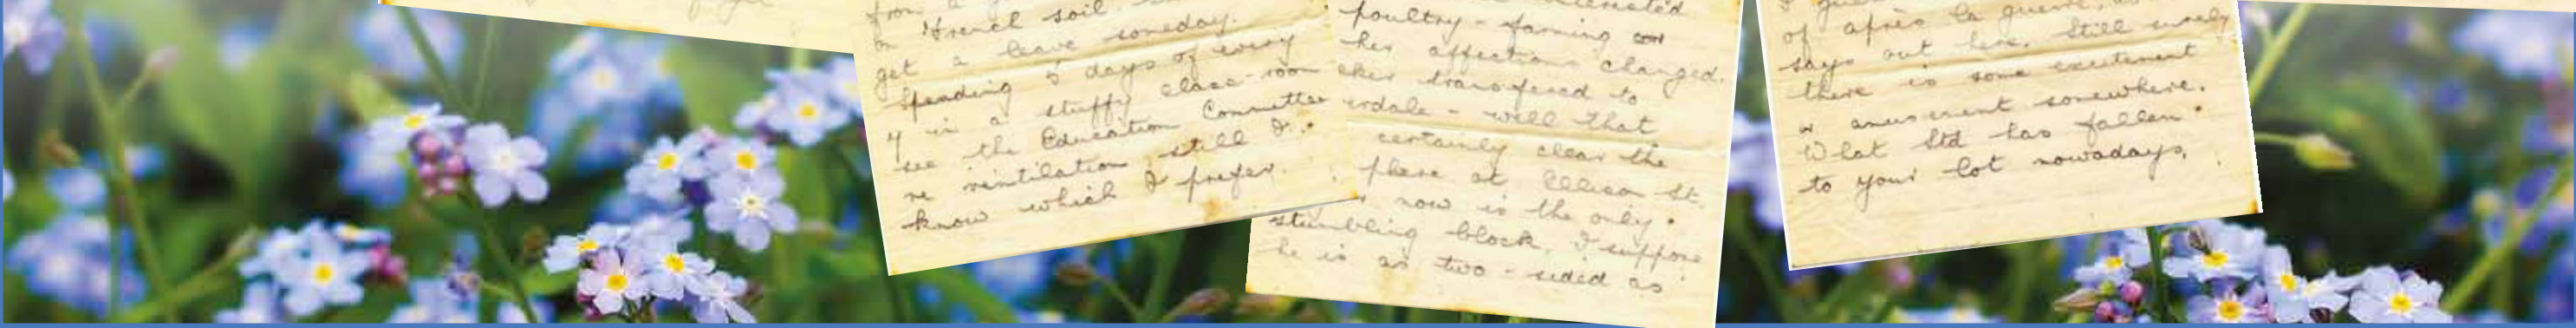 from a
on French soil
get a leave someday.
spending 5 days of every
y in a stuffy class-room
see the Education Committee
re ventilation still I
know which I prefer.
poultry-farming
her affections changed.
eher transfered to
erdale - well that
certainly clear the
phere at Ellison St.
now is the only
stumbling block. I suppose
he is as two-sided as
of après la guerre,
says out here. Still surely
there is some excitement
or amusement somewhere.
What Std has fallen
to your lot nowadays.